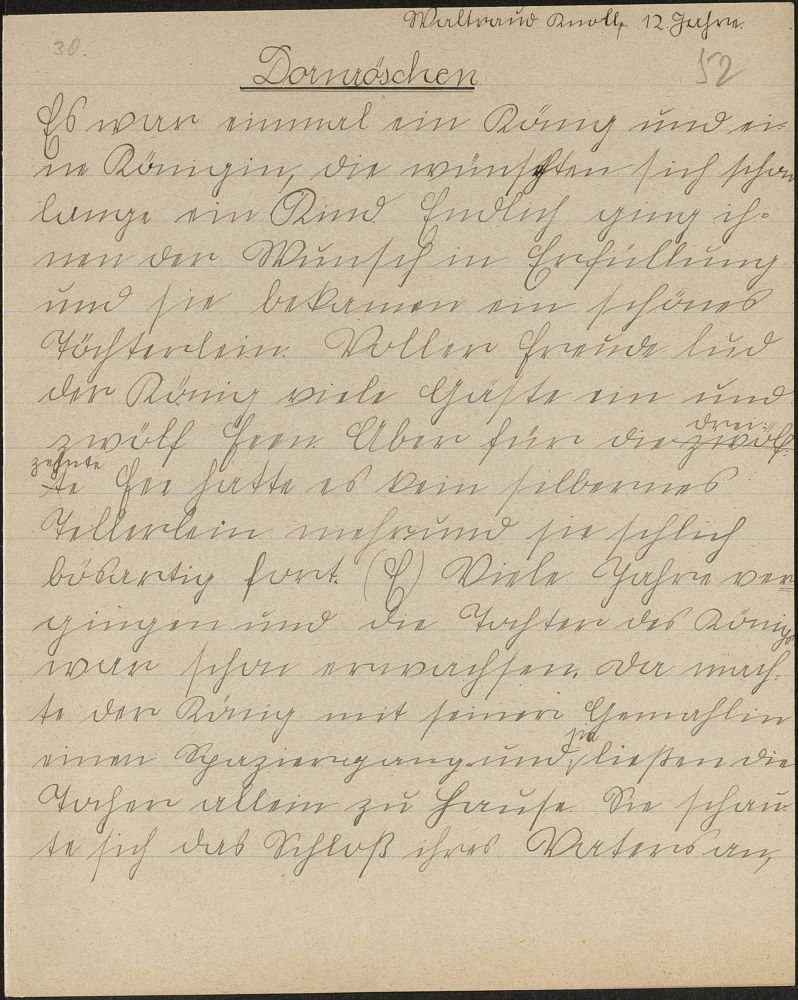 Waltraud Knoll, 12. Jahre.
30.
52
Dornröschen
Es war einmal ein König und ei-
ne Königin, die wünschten sich schon
lange ein Kind. Endlich ging ih-
nen der Wunsch in Erfüllung
und sie bekamen ein schönes
Töchterlein. Voller Freude lud
der König viele Gäste ein und
zwölf Feen. Aber für die zwölf- drei-
te zehnte Fee hatte es kein silbernes
Tellerlein mehr und sie schlich
bösartig fort. (E) Viele Jahre ver
gingen und die Tochter des Königs
war schon erwachsen. Da mach-
te der König mit seiner Gemahlin
einen Spaziergang und sie ließen die
Tocher allein zu Hause. Sie schau
te sich das Schloß ihres Vaters an,